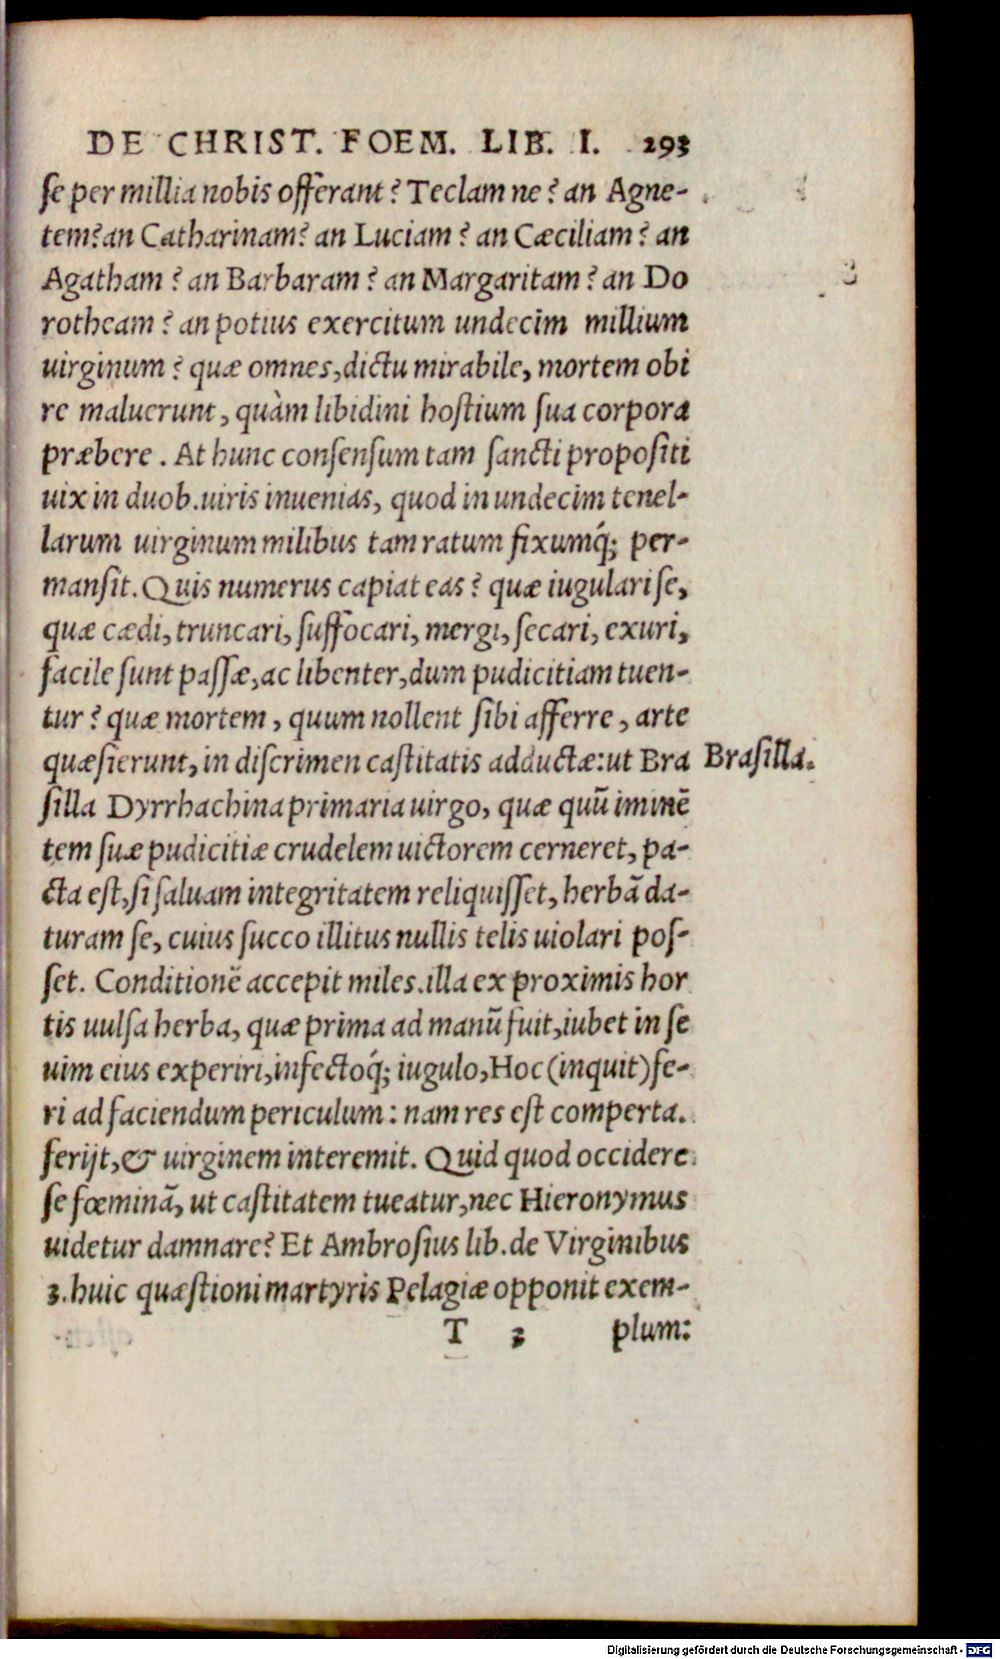 DE CHRIST. FOEM. LIB. I. 293
ſe per millia nobis offerant? Teclam ne? an Agne-
tem? an Catharinam? an Luciam? an Cæciliam? an
Agatham? an Barbaram? an Margaritam? an Do
rotheam? an potius exercitum undecim millium
uirginum? quæ omnes, dictu mirabile, mortem obi
re maluerunt, quàm libidini hoſtium ſua corpora
præbere. At hunc conſenſum tam ſancti propoſiti
uix in duob. uiris inuenias, quod in undecim tenel-
larum uirginum milibus tam ratum fixumq́; per-
manſit. Quis numerus capiat eas? quæ iugulari ſe,
quæ cædi, truncari, ſuffocari, mergi, ſecari, exuri,
facile ſunt paſſæ, ac libenter, dum pudicitiam tuen-
tur? quæ mortem, quum nollent ſibi afferre, arte
quæſierunt, in diſcrimen caſtitatis adductæ: ut Bra
Braſilla.
ſilla Dyrrhachina primaria uirgo, quæ quū iminē
tem ſuæ pudicitiæ crudelem uictorem cerneret, pa-
cta eſt, ſi ſaluam integritatem reliquiſſet, herbā da-
turam ſe, cuius ſucco illitus nullis telis uiolari poſ-
ſet. Conditionē accepit miles. illa ex proximis hor
tis uulſa herba, quæ prima ad manū fuit, iubet in ſe
uim eius experiri, infectoq́; iugulo, Hoc (inquit) fe-
ri ad faciendum periculum: nam res eſt comperta.
ferijt, & uirginem interemit. Quid quod occidere
ſe fœminā, ut caſtitatem tueatur, nec Hieronymus
uidetur damnare? Et Ambroſius lib. de Virginibus
3. huic quæſtioni martyris Pelagiæ opponit exem-
T 3 plum:
Digitalisierung gefördert durch die Deutsche Forschungsgemeinschaft - DFG